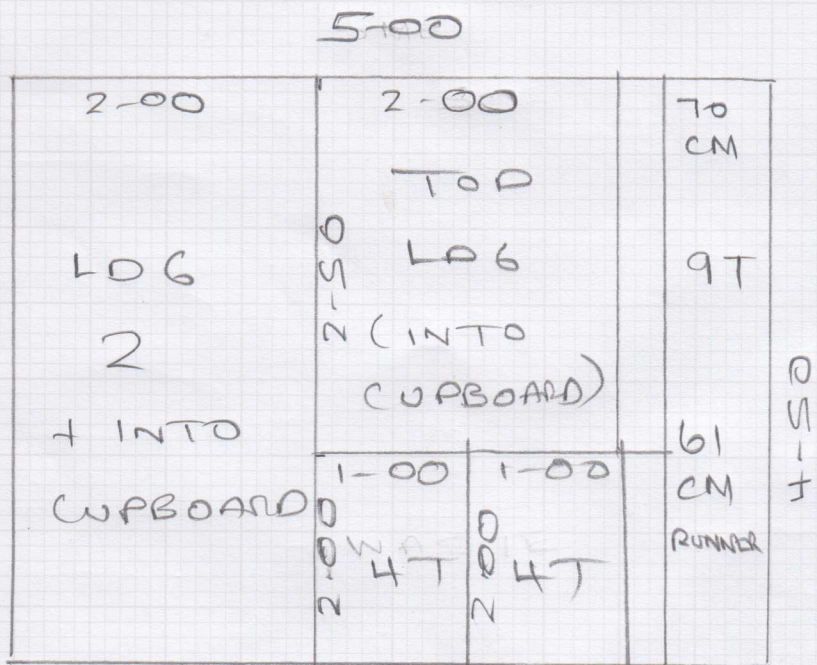 5-00
2-00
LD6
2
+ INTO
CUPBOARD
2-00
TOP
LD6
(INTO
CUPBOARD)
2-50
1-00
2-00
4T
1-00
2-00
4T
70
CM
9T
61
CM
RUNNER
4-50